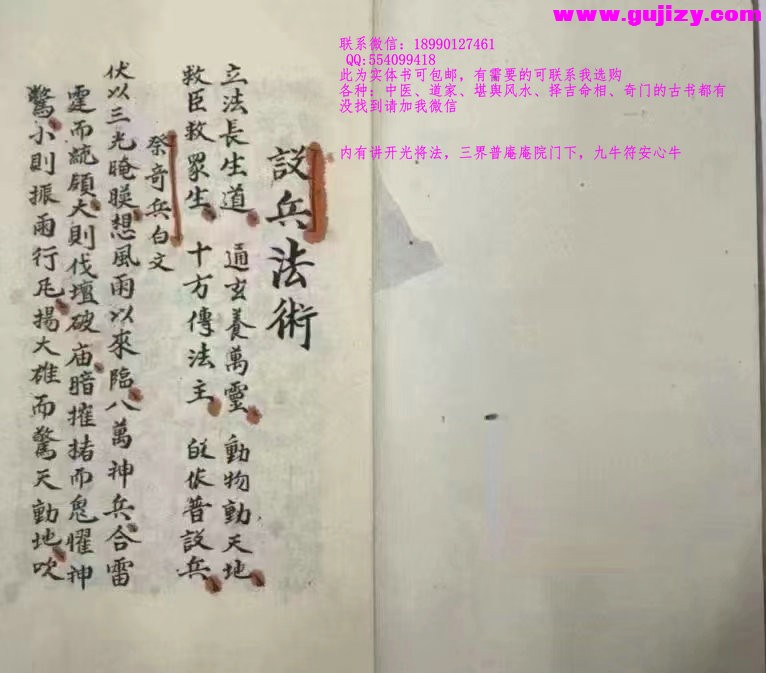 www.gujizy.com
联系微信：18990127461
QQ:554099418
此为实体书可包邮，有需要的可联系我选购
各种：中医、道家、堪舆风水、择吉命相、奇门的古书都有
没找到请加我微信
内有讲开光将法，三界普庵庵院门下，九牛符安心牛
設兵法術
立法長生道 通玄養萬靈 動物動天地
救臣救眾生 十方傳法主 皈依普設兵
祭奇兵白文
伏以三光晻暎想風雨以來臨八萬神兵合雷
霆而統領大則伐壇破庙暗摧㨋而鬼懼神
驚小則振雨行瓦揚大雄而驚天動地吹